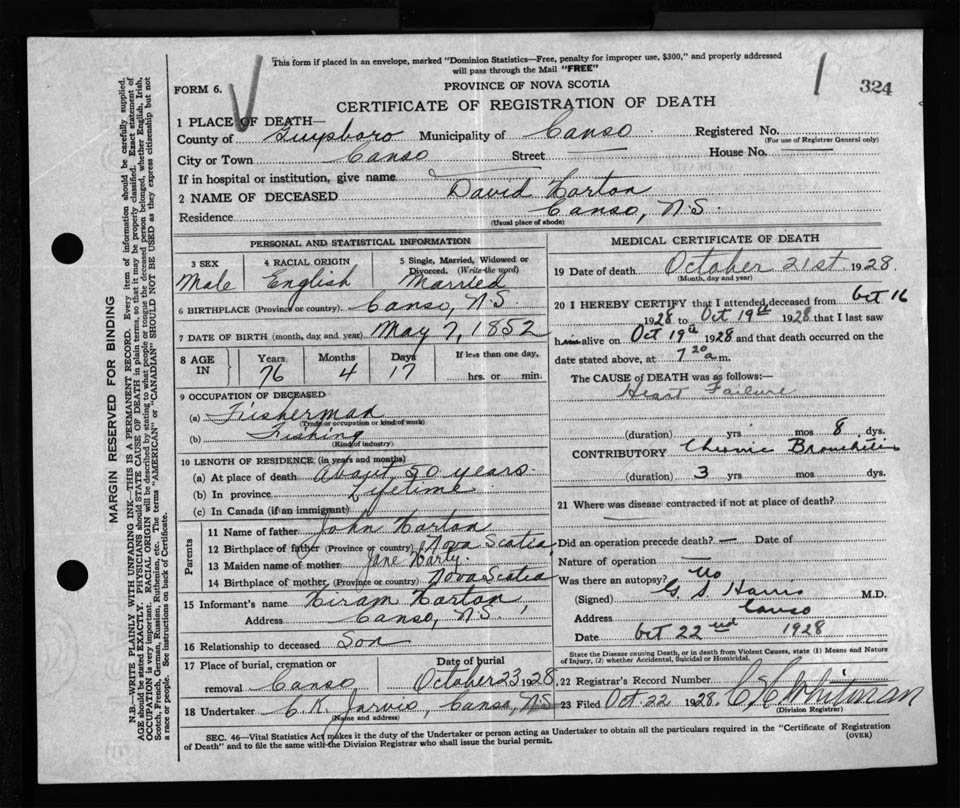 This form if placed in an envelope, marked "Dominion Statistics—Free, penalty for improper use, $300," and properly addressed
will pass through the Mail "FREE"
FORM 6.
PROVINCE OF NOVA SCOTIA
1
324
CERTIFICATE OF REGISTRATION OF DEATH
1 PLACE OF DEATH—
County of Guysboro Municipality of Canso Registered No.
(For use of Registrar General only)
City or Town Canso Street — House No. —
If in hospital or institution, give name
2 NAME OF DECEASED David Horton
Residence Canso, N.S.
(Usual place of abode)
PERSONAL AND STATISTICAL INFORMATION
3 SEX 4 RACIAL ORIGIN 5 Single, Married, Widowed or
Divorced. (Write the word)
Male English Married
6 BIRTHPLACE (Province or country) Canso, N.S.
7 DATE OF BIRTH (month, day and year) May 7, 1852
8 AGE IN Years Months Days If less than one day,
76 4 17 hrs. or min.
9 OCCUPATION OF DECEASED
(a) Fisherman
(Trade or occupation or kind of work)
(b) Fishing
(Kind of industry)
10 LENGTH OF RESIDENCE (in years and months)
(a) At place of death About 50 years.
(b) In province Lifetime
(c) In Canada (if an immigrant)
Parents
11 Name of father John Horton
12 Birthplace of father (Province or country) Nova Scotia
13 Maiden name of mother Jane Harty.
14 Birthplace of mother (Province or country) Nova Scotia
15 Informant's name Hiram Horton,
Address Canso, N.S.
16 Relationship to deceased Son
17 Place of burial, cremation or Date of burial
removal Canso October 23 1928
18 Undertaker C.K. Jarvis, Canso, N.S.
(Name and address)
MEDICAL CERTIFICATE OF DEATH
19 Date of death October 21st 1928.
(Month, day and year)
20 I HEREBY CERTIFY that I attended deceased from Oct 16
1928 to Oct 19th 1928 that I last saw
him alive on Oct 19th 1928 and that death occurred on the
date stated above, at 7 20 a.m.
The CAUSE of DEATH was as follows:—
Heart Failure
(duration) yrs mos 8 dys.
CONTRIBUTORY Chronic Bronchitis
(duration) 3 yrs mos dys.
21 Where was disease contracted if not at place of death?
Did an operation precede death? — Date of
Nature of operation
Was there an autopsy? No
(Signed) G S Harris M.D.
Address Canso
Date Oct 22nd 1928
State the Disease causing Death, or in death from Violent Causes, state (1) Means and Nature
of Injury, (2) whether Accidental, Suicidal or Homicidal.
22 Registrar's Record Number
23 Filed Oct. 22 1928. C H Whitman
(Division Registrar)
SEC. 46—Vital Statistics Act makes it the duty of the Undertaker or person acting as Undertaker to obtain all the particulars required in the "Certificate of Registration
of Death" and to file the same with the Division Registrar who shall issue the burial permit.
(OVER)
MARGIN RESERVED FOR BINDING
N.B.—WRITE PLAINLY WITH UNFADING INK—THIS IS A PERMANENT RECORD. Every item of information should be carefully supplied.
AGE should be stated EXACTLY. PHYSICIANS should STATE CAUSE OF DEATH in plain terms, so that it may be properly classified. Exact statement of
OCCUPATION is very important. RACIAL ORIGIN will be described by stating to what people or tongue the deceased person belonged, whether English, Irish,
Scotch, French, German, Russian, Ruthenian, etc. The terms "AMERICAN" or "CANADIAN" SHOULD NOT BE USED as they express citizenship but not
a race of people. See instructions on back of Certificate.